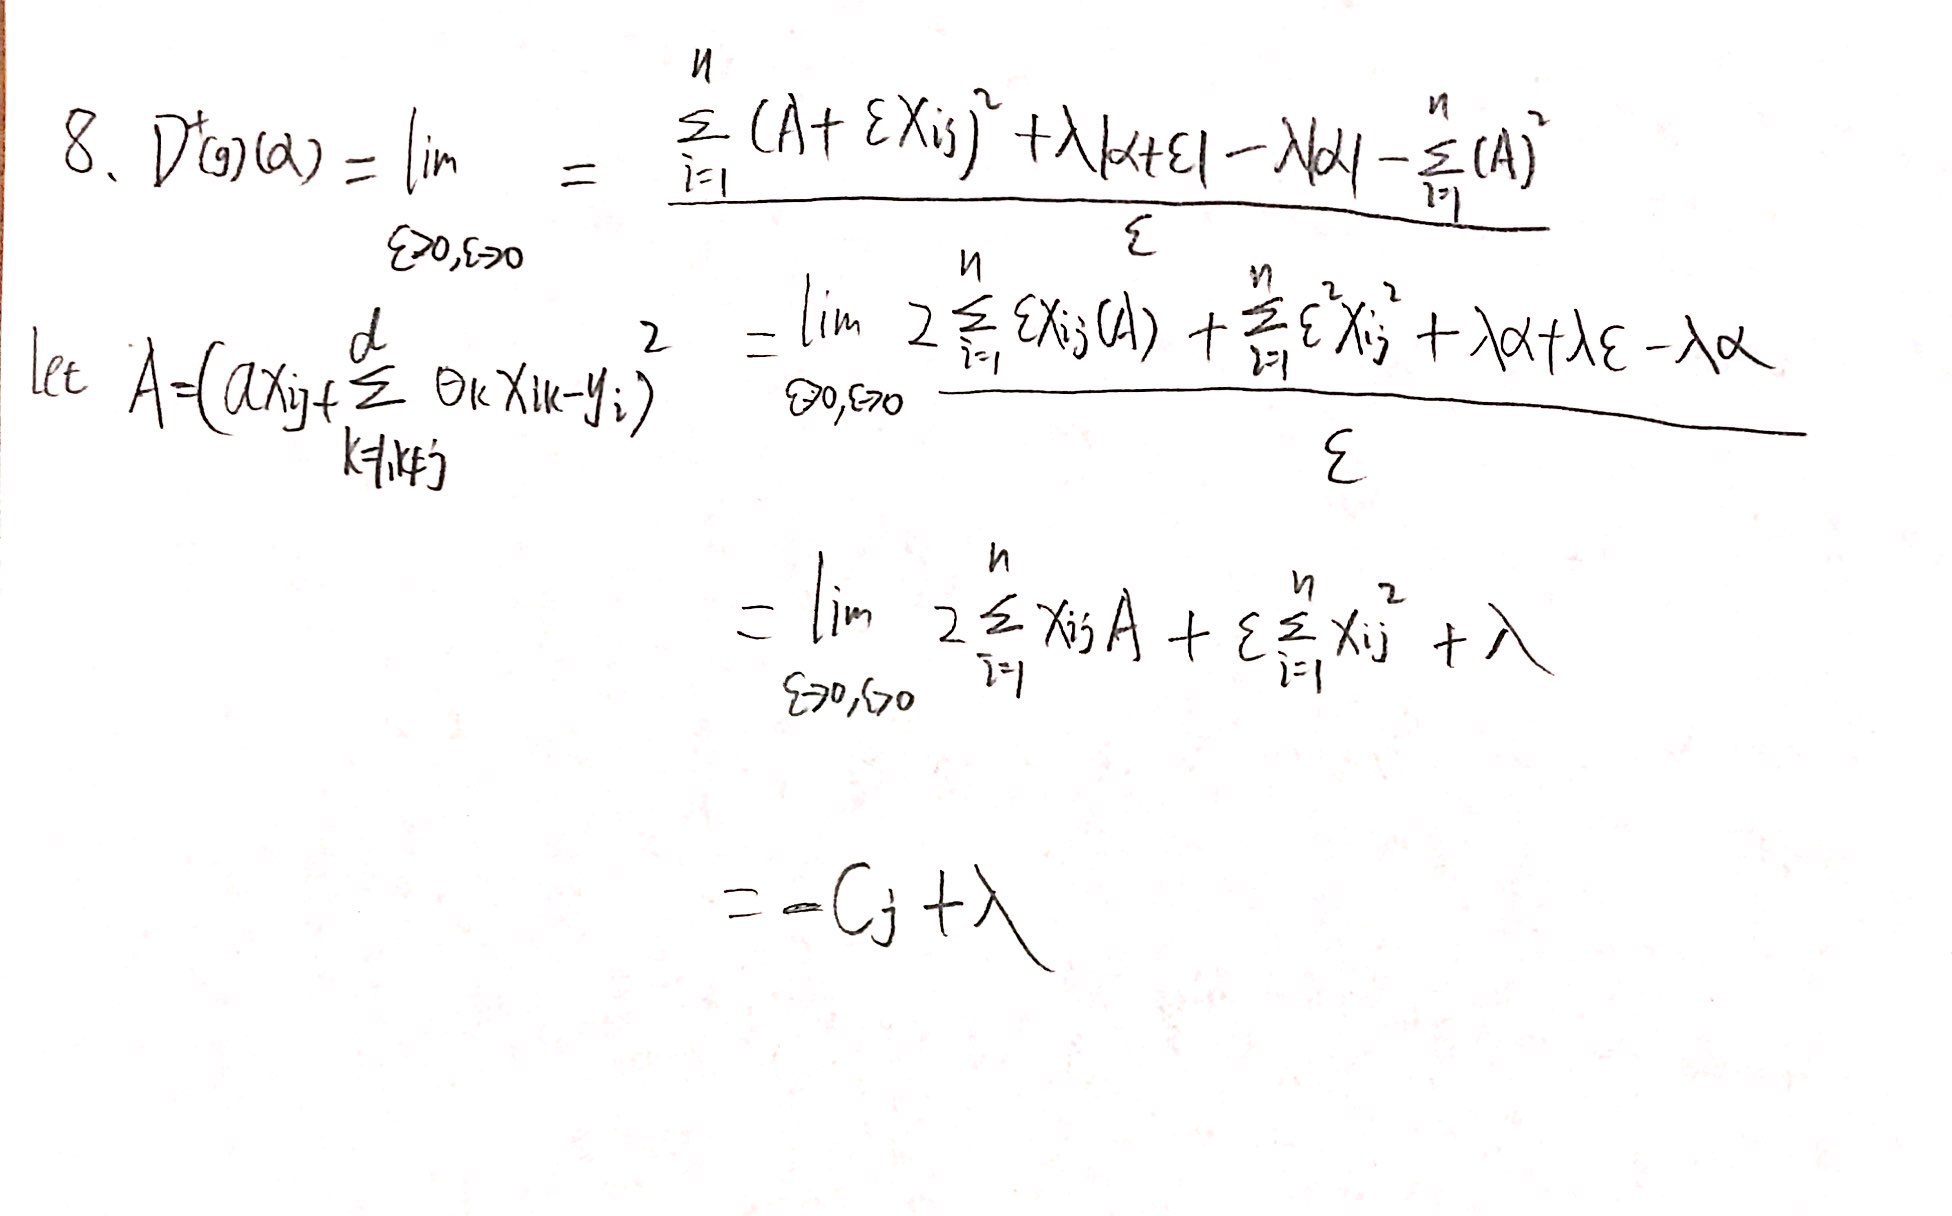 8. D⁺(g)(α) = lim_{ε>0,ε→0} = \frac{\sum_{i=1}^{n} (A + εX_{ij})^2 + λ|α+ε| - λ|α| - \sum_{i=1}^{n} (A)^2}{ε}
let A = (aX_{ij} + \sum_{k=1,k≠j}^{d} θ_k X_{ik} - y_i)^2
= lim_{ε→0,ε>0} \frac{2 \sum_{i=1}^{n} εX_{ij}(A) + \sum_{i=1}^{n} ε^2 X_{ij}^2 + λα + λε - λα}{ε}
= lim_{ε→0,ε>0} 2 \sum_{i=1}^{n} X_{ij} A + ε \sum_{i=1}^{n} X_{ij}^2 + λ
= -C_j + λ